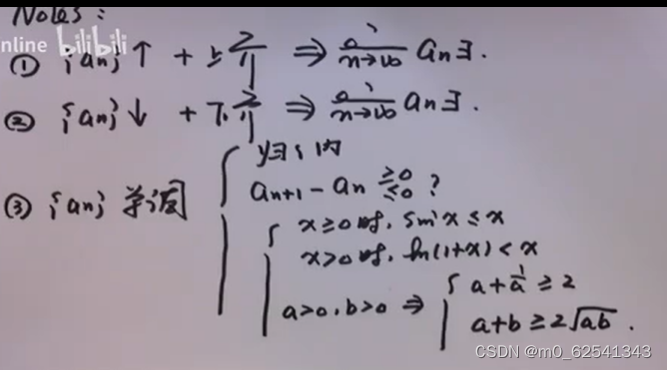 Notes:
nline bilibili
① {an}↑ + 上界 ⇒ lim n→∞ an∃.
② {an}↓ + 下界 ⇒ lim n→∞ an∃.
③ {an} 单调 { 归纳
an+1 - an ≥0 ≤0 ?
{ x≥0时, sin x ≤ x
x>0时, ln(1+x) < x
a>0, b>0 ⇒ { a + 1/a ≥ 2
a+b ≥ 2√ab.
CSDN @m0_62541343